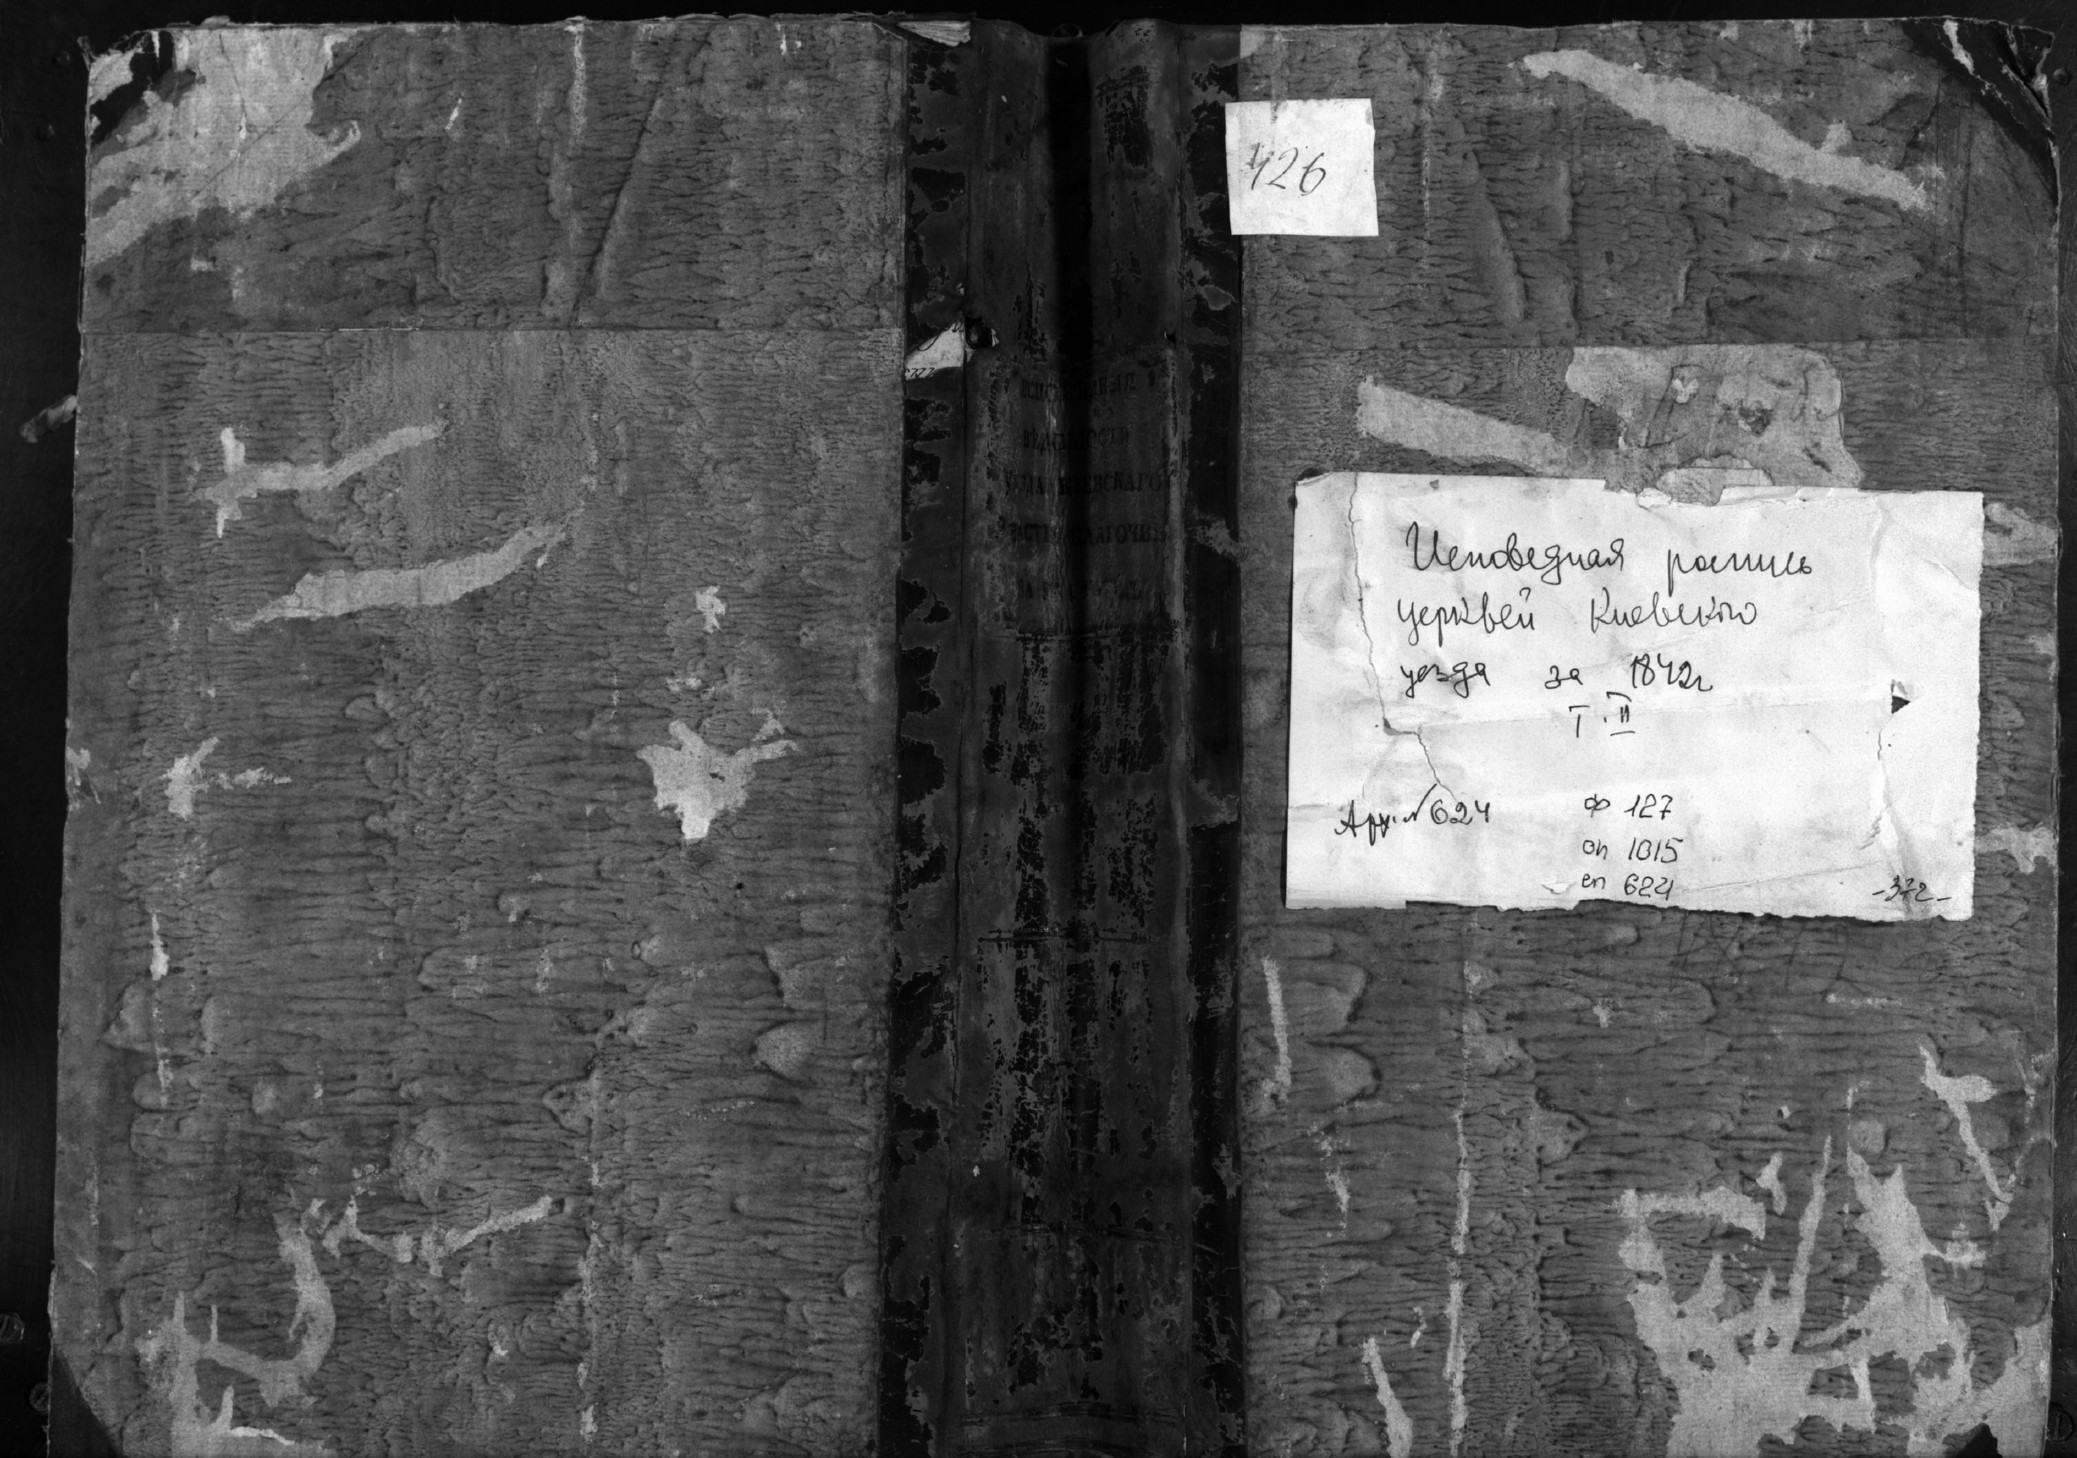 426
ВѢДОМОСТИ
Исповедная роспись
церквей Киевского
уезда за 1842г
Т. II
Арх. № 624
ф 127
оп 1015
еп 624
-372-